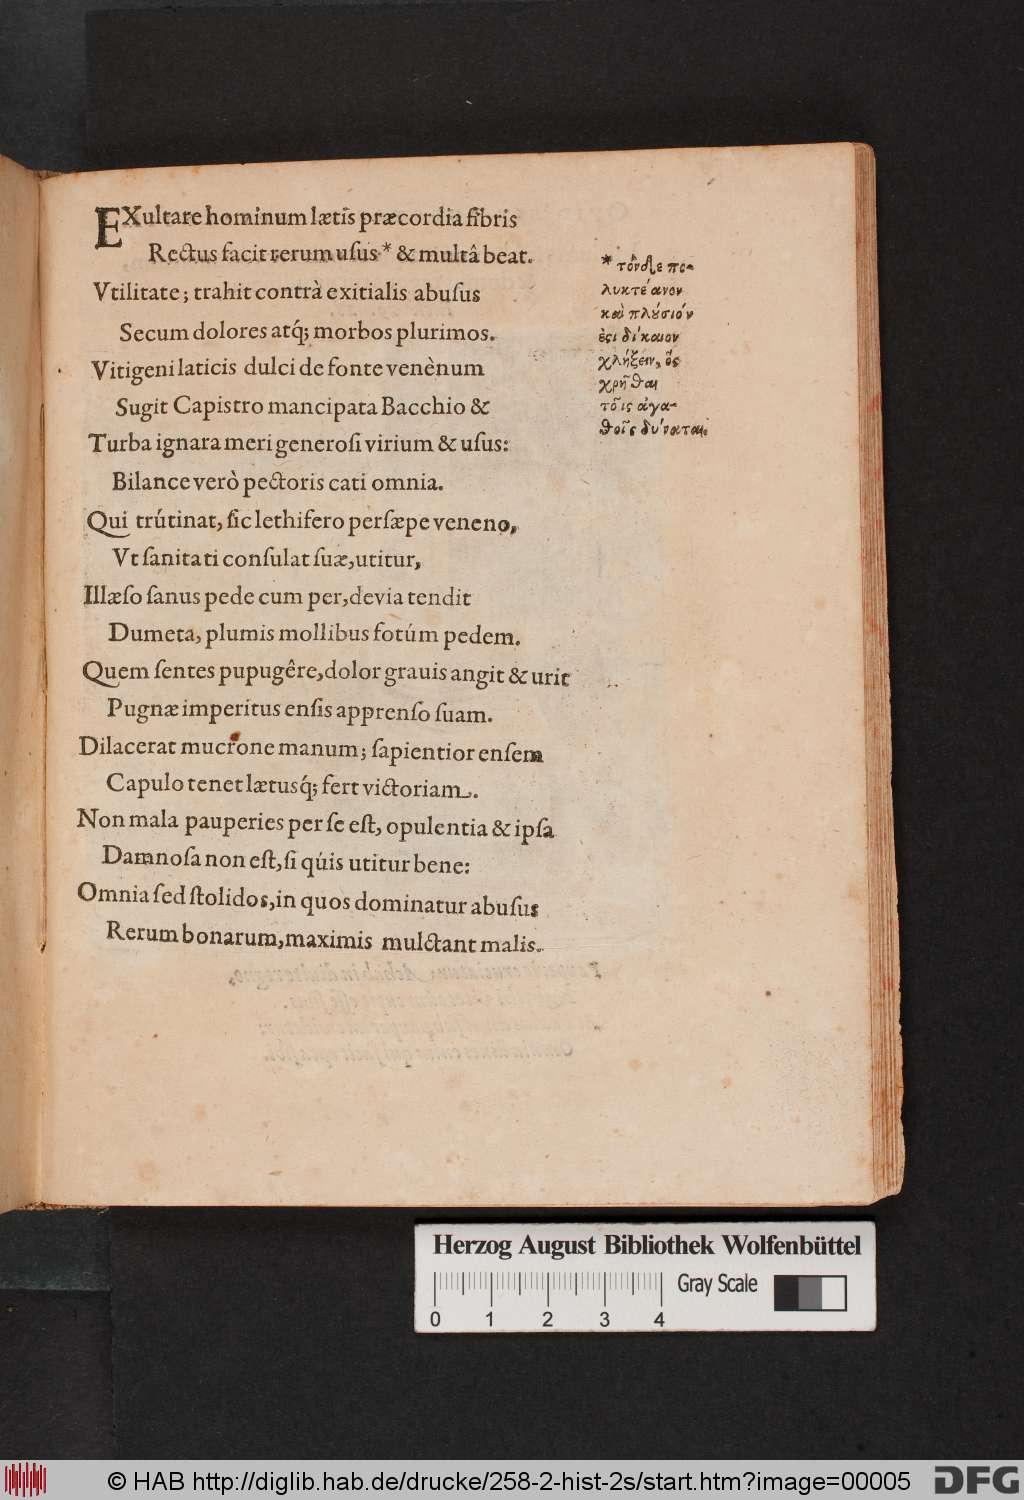 EXultare hominum lætis præcordia fibris
Rectus facit rerum uſus * & multâ beat.
Vtilitate; trahit contrà exitialis abuſus
Secum dolores atq́; morbos plurimos.
Vitigeni laticis dulci de fonte venènum
Sugit Capistro mancipata Bacchio &
Turba ignara meri generoſi virium & uſus:
Bilance verò pectoris cati omnia.
Qui trútinat, ſic lethifero perſæpe veneno,
Vt ſanitati conſulat ſuæ, utitur,
Illæſo ſanus pede cum per, devia tendit
Dumeta, plumis mollibus fotúm pedem.
Quem ſentes pupugêre, dolor grauis angit & urit
Pugnæ imperitus enſis apprenſo ſuam.
Dilacerat mucrone manum; ſapientior enſem
Capulo tenet lætusq́; fert victoriam.
Non mala pauperies per ſe eſt, opulentia & ipſa
Damnoſa non eſt, ſi qúis utitur bene:
Omnia ſed ſtolidos, in quos dominatur abuſus
Rerum bonarum, maximis mulctant malis.
* τόνδε πο-
λυκτέανον
καὶ πλύσιόν
ἐςι δίκαιον
χλήξειν, ὅς
χρῆθαι
τοῖς ἀγα-
θοῖς δύναται.
Herzog August Bibliothek Wolfenbüttel
Gray Scale
0 1 2 3 4
© HAB http://diglib.hab.de/drucke/258-2-hist-2s/start.htm?image=00005
DFG